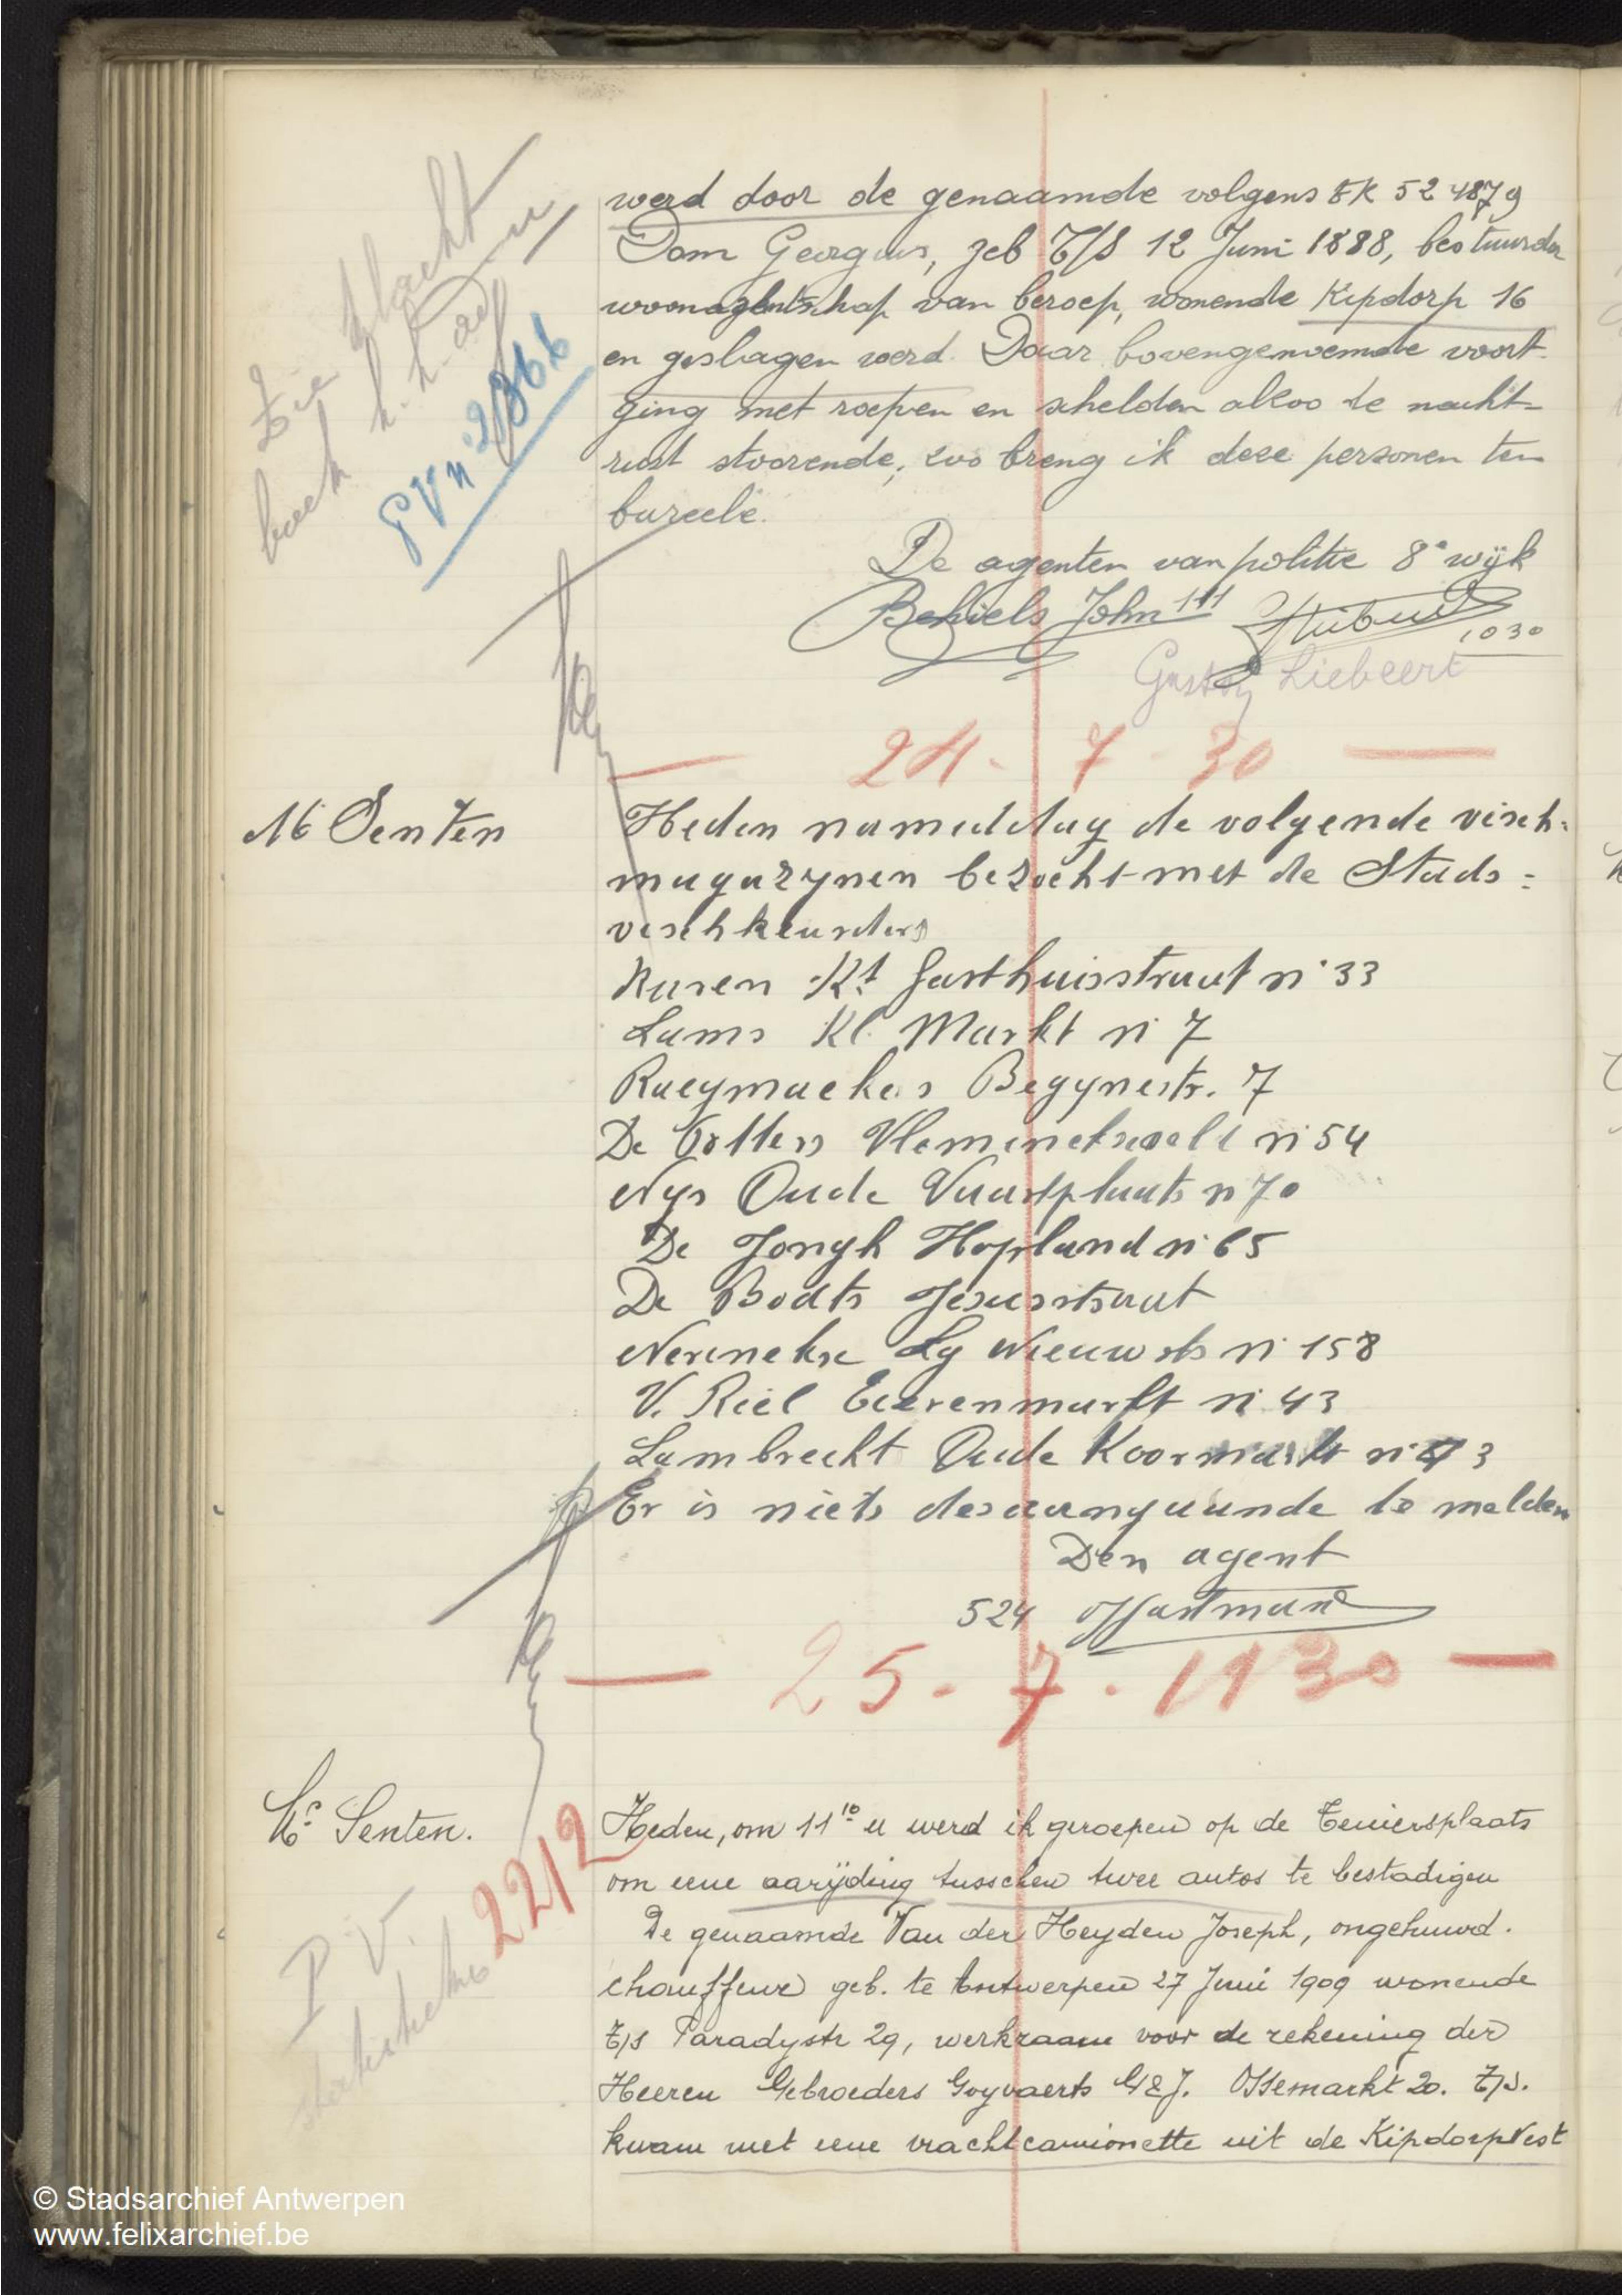 werd door de genaamde volgens EK 524879
Dom Georgius, geb T/S 12 Juni 1888, bestuurder
woonagentschap van beroep, wonende Kipdorp 16
en geslagen werd. Daar bovengenoemde voort-
ging met roepen en schelden alzoo de nacht-
rust stoorende, zoo breng ik deze personen ten
bureele.
Zie klacht
boek
PV n° 2866
De agenten van politie 8e wijk
Behiels John 111
1030
Gustaaf Liebeert
24 - 7 - 30
Mr Senten
Heden namiddag de volgende visch=
magazynen bezocht met de Stads=
vischkeurders
Kt Gasthuisstraat n° 33
Lams Kl. Markt n° 7
Raeymaekers Begynestr. 7
De Potters Vleminckxveld n° 54
Nys Oude Vaartplaats n 70
De Jongh Hopland n° 65
De Bodts Jesusstraat
Nerinckx Lg Nieuwstr n° 158
V. Riel Eierenmarkt n° 43
Lambrecht Oude Koormarkt n° 73
Er is niets desaangaande te melden
Den agent
524 Hartman
25 - 7 - 1930
Hr Senten.
2212
P. V.
Heden, om 11 10 u werd ik geroepen op de Teniersplaats
om eene aarijding tusschen twee autos te bestadigen
De genaamde Van der Heyden Joseph, ongehuwd.
chauffeur geb. te Antwerpen 27 Juni 1909 wonende
T/S Paradystr 29, werkzaam voor de rekening der
Heeren Gebroeders Goyvaerts G&J. Ossemarkt 20. T/S.
kwam met eene vrachtcamionette uit de Kipdorpvest
© Stadsarchief Antwerpen
www.felixarchief.be